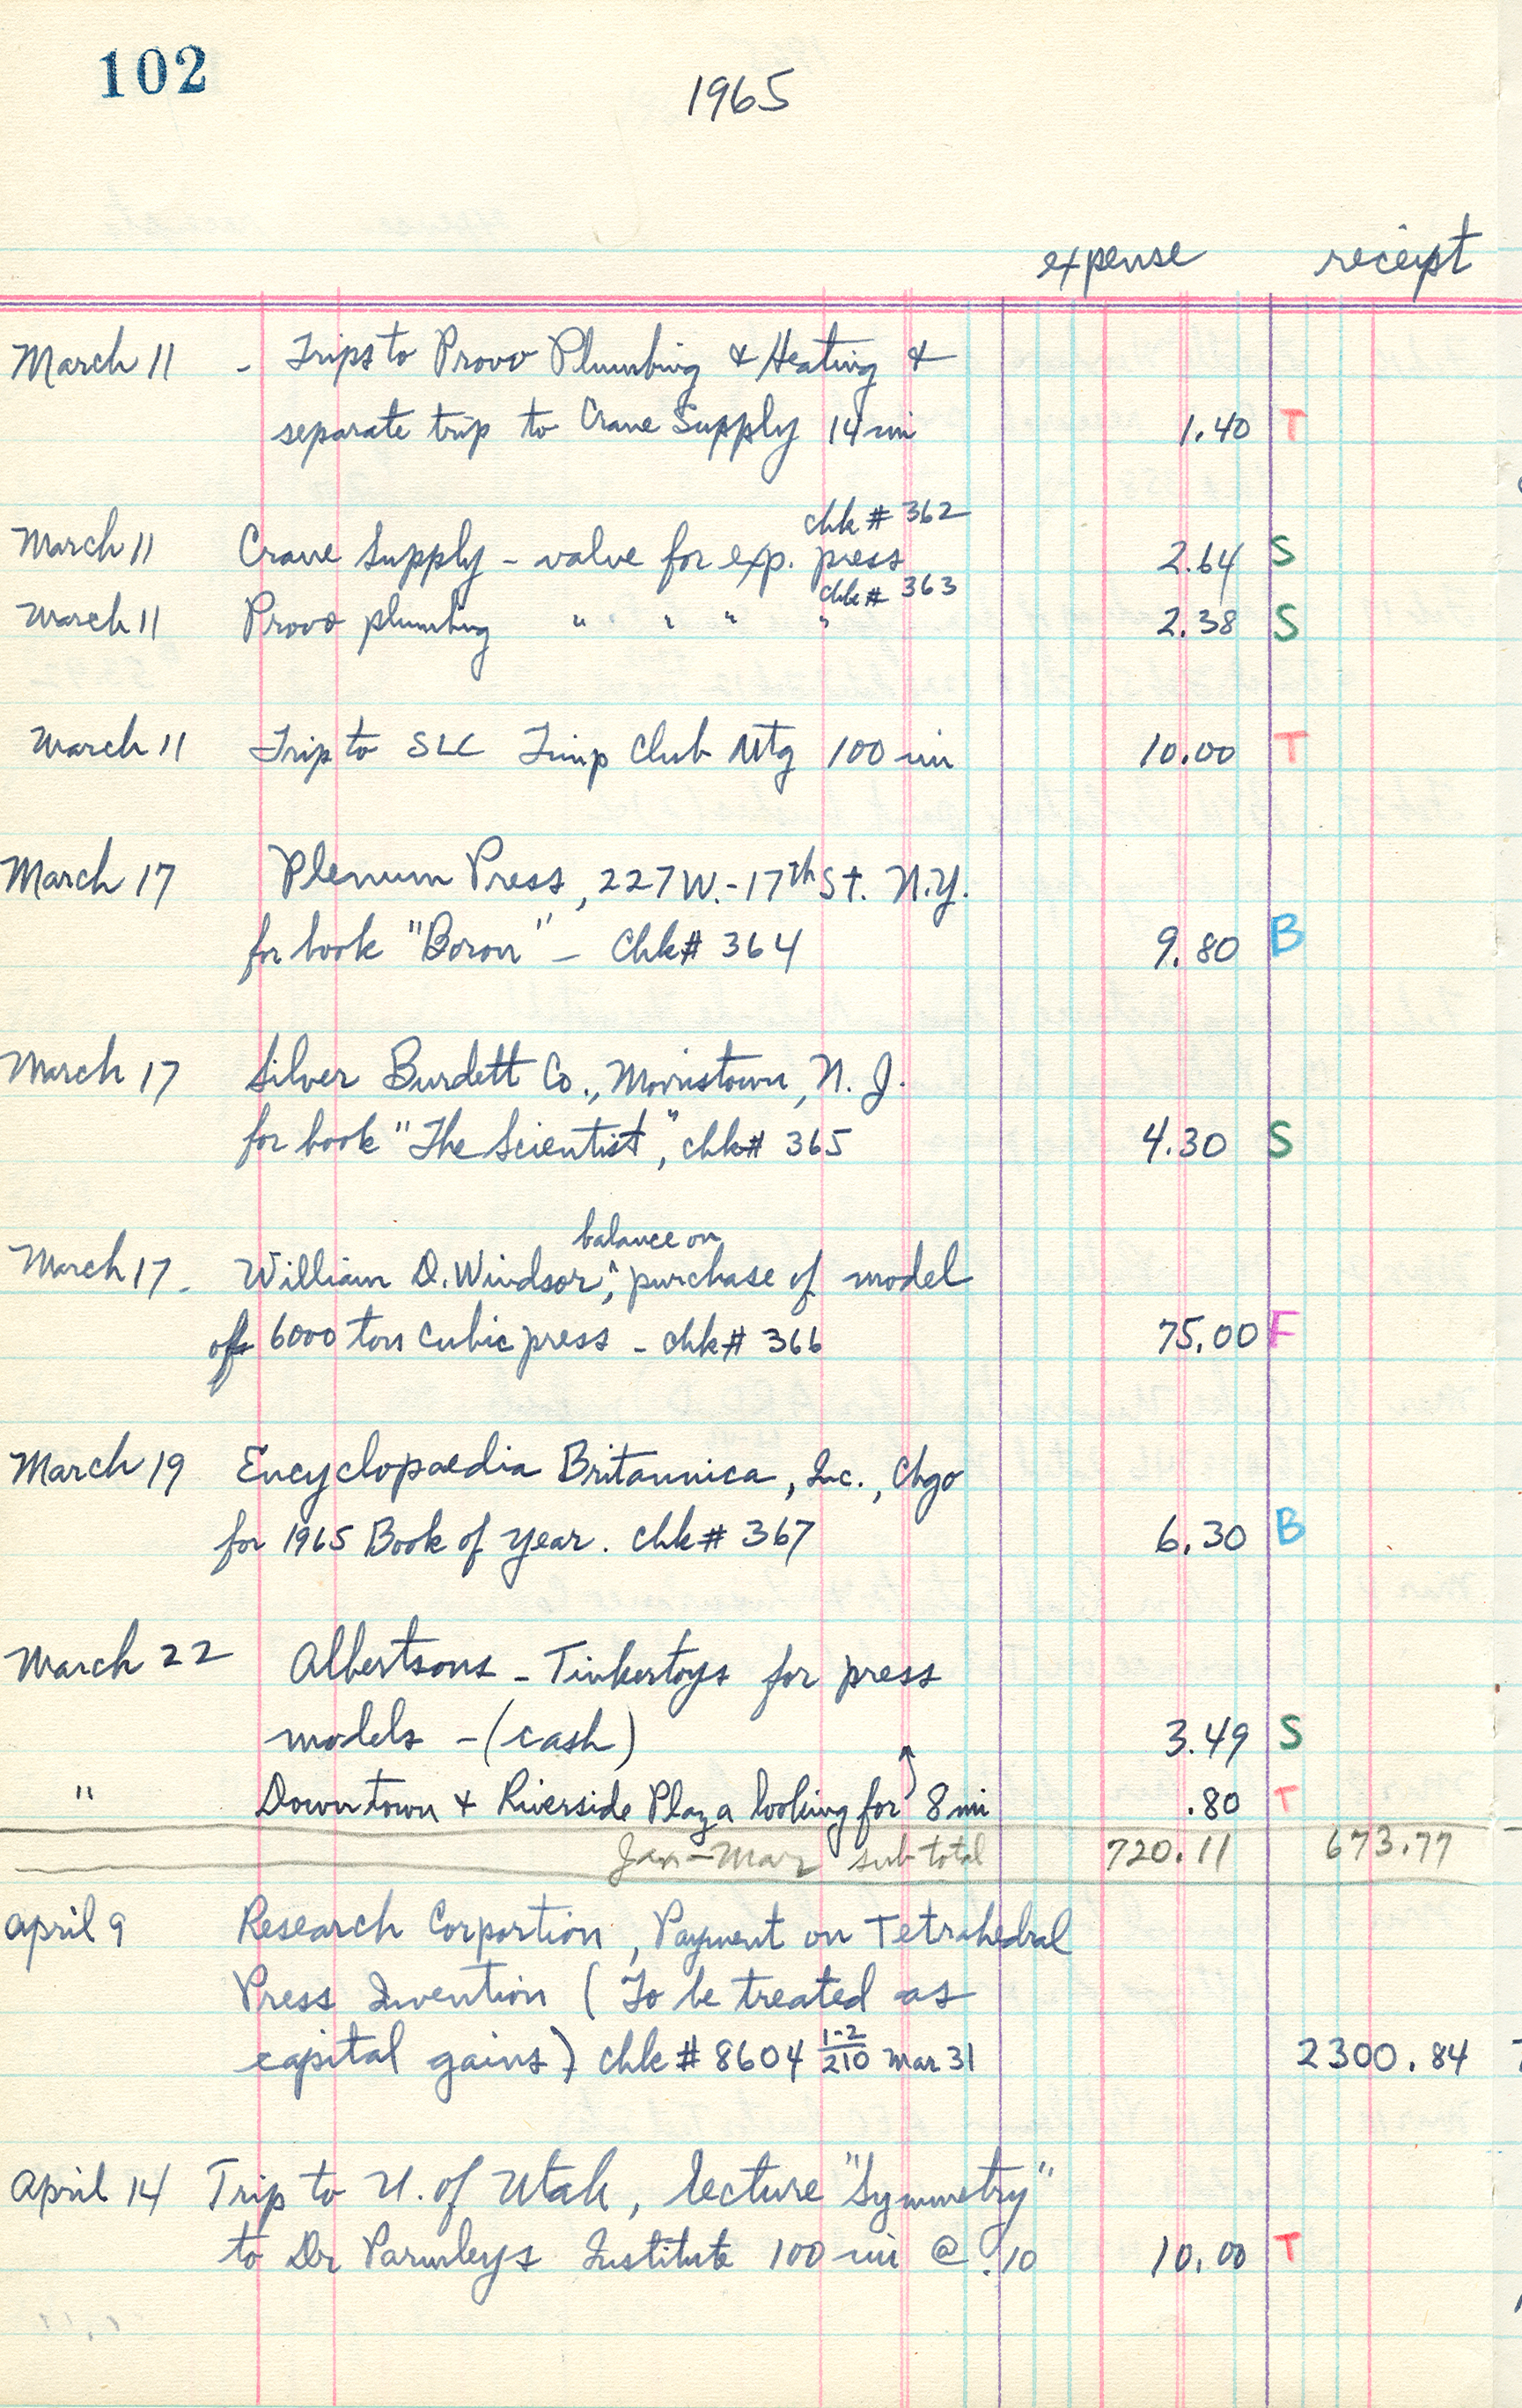 102
1965
expense receipt
March 11 - Trips to Provo Plumbing & Heating &
separate trip to Crane Supply 14 mi 1.40 T
chk # 362
March 11 Crane Supply - valve for exp. press 2.64 S
chk # 363
March 11 Provo plumbing " " " " 2.38 S
March 11 Trip to SLC Timp Club Mtg 100 mi 10.00 T
March 17 Plenum Press, 227 W.-17th St. N.Y.
for book "Boron" - Chk# 364 9.80 B
March 17 Silver Burdett Co., Morristown, N. J.
for book "The Scientist," chk# 365 4.30 S
balance on
March 17 - William D. Windsor, ^ purchase of model
of 6000 ton cubic press - chk# 366 75.00 F
March 19 Encyclopaedia Britannica, Inc., Chgo
for 1965 Book of year. Chk# 367 6.30 B
March 22 Albertsons - Tinkertoys for press
models - (cash) 3.49 S
" Downtown & Riverside Plaza looking for ↑ 8 mi .80 T
Jan-Mar sub total 720.11 673.77
April 9 Research Corportion, Payment on Tetrahedral
Press Invention (To be treated as
capital gains) chk # 8604 1-2/210 Mar 31 2300.84
April 14 Trip to U. of Utah, lecture "Symmetry"
to Dr Parmleys Institute 100 mi @ .10 10.00 T